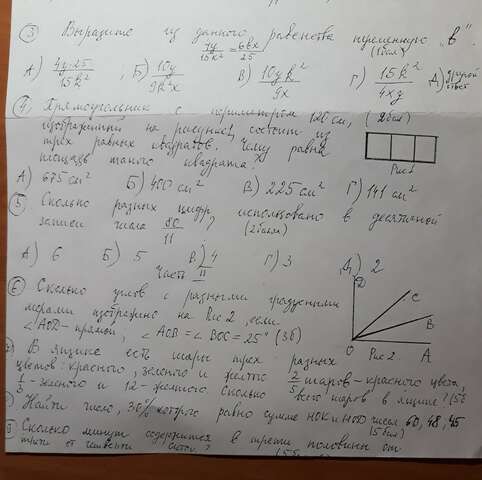 ③ Выразите из данного равенства переменную „в".
7y/15k² = 6вx/25 (1бал)
А) 4y·25/15k² ; Б) 10y/9k²x В) 10yk²/9x Г) 15k²/4xy Д) другой ответ
④ Прямоугольник с периметром 120 см, (2бал)
изображенный на рисунке1, состоит из
трех равных квадратов. Чему равна
площадь такого квадрата?
Рис1
А) 675 см² Б) 400 см² В) 225 см² Г) 141 см²
⑤ Сколько разных цифр использовано в десятичной
записи числа 80/11? (2бала)
А) 6 Б) 5 В) 4 Г) 3 Д) 2
Часть II
⑥ Сколько углов с разными градусными
мерами изображено на Рис 2, если
∠AOD - прямой, ∠AOB = ∠BOC = 25° (3б)
D
C
B
O Рис 2 A
В ящике есть шары трех разных
цветов: красного, зеленого и желтого 2/5 шаров - красного цвета,
1/3 - зеленого и 12 - желтого. Сколько всего шаров в ящике? (5б
Найти число, 30% которого равно сумме НОК и НОД чисел 60, 48, 45
(5бал)
Сколько минут содержится в трети половины от
трети от